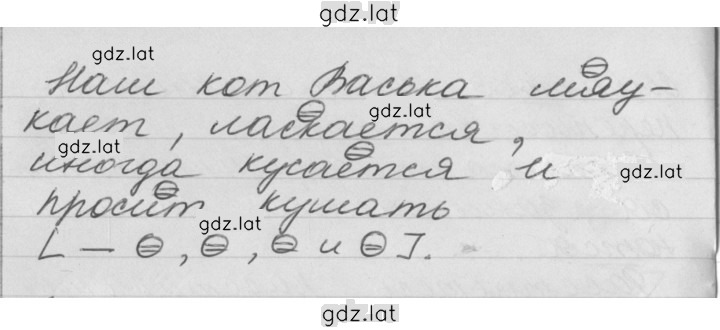 gdz.lat
gdz.lat
Наш кот Васька мяу-
кает, ласкается,
gdz.lat
gdz.lat
иногда кусается и
gdz.lat
просит кушать
gdz.lat
[ — ⊖, ⊖, ⊖ и ⊖ ].
gdz.lat